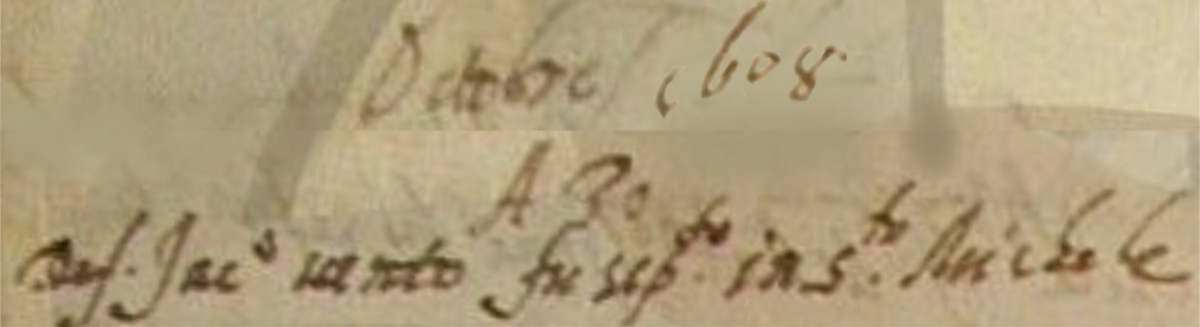 Octobre 1608
A 30
Sef. Jac.º uento fu sep.to in S.to Michele